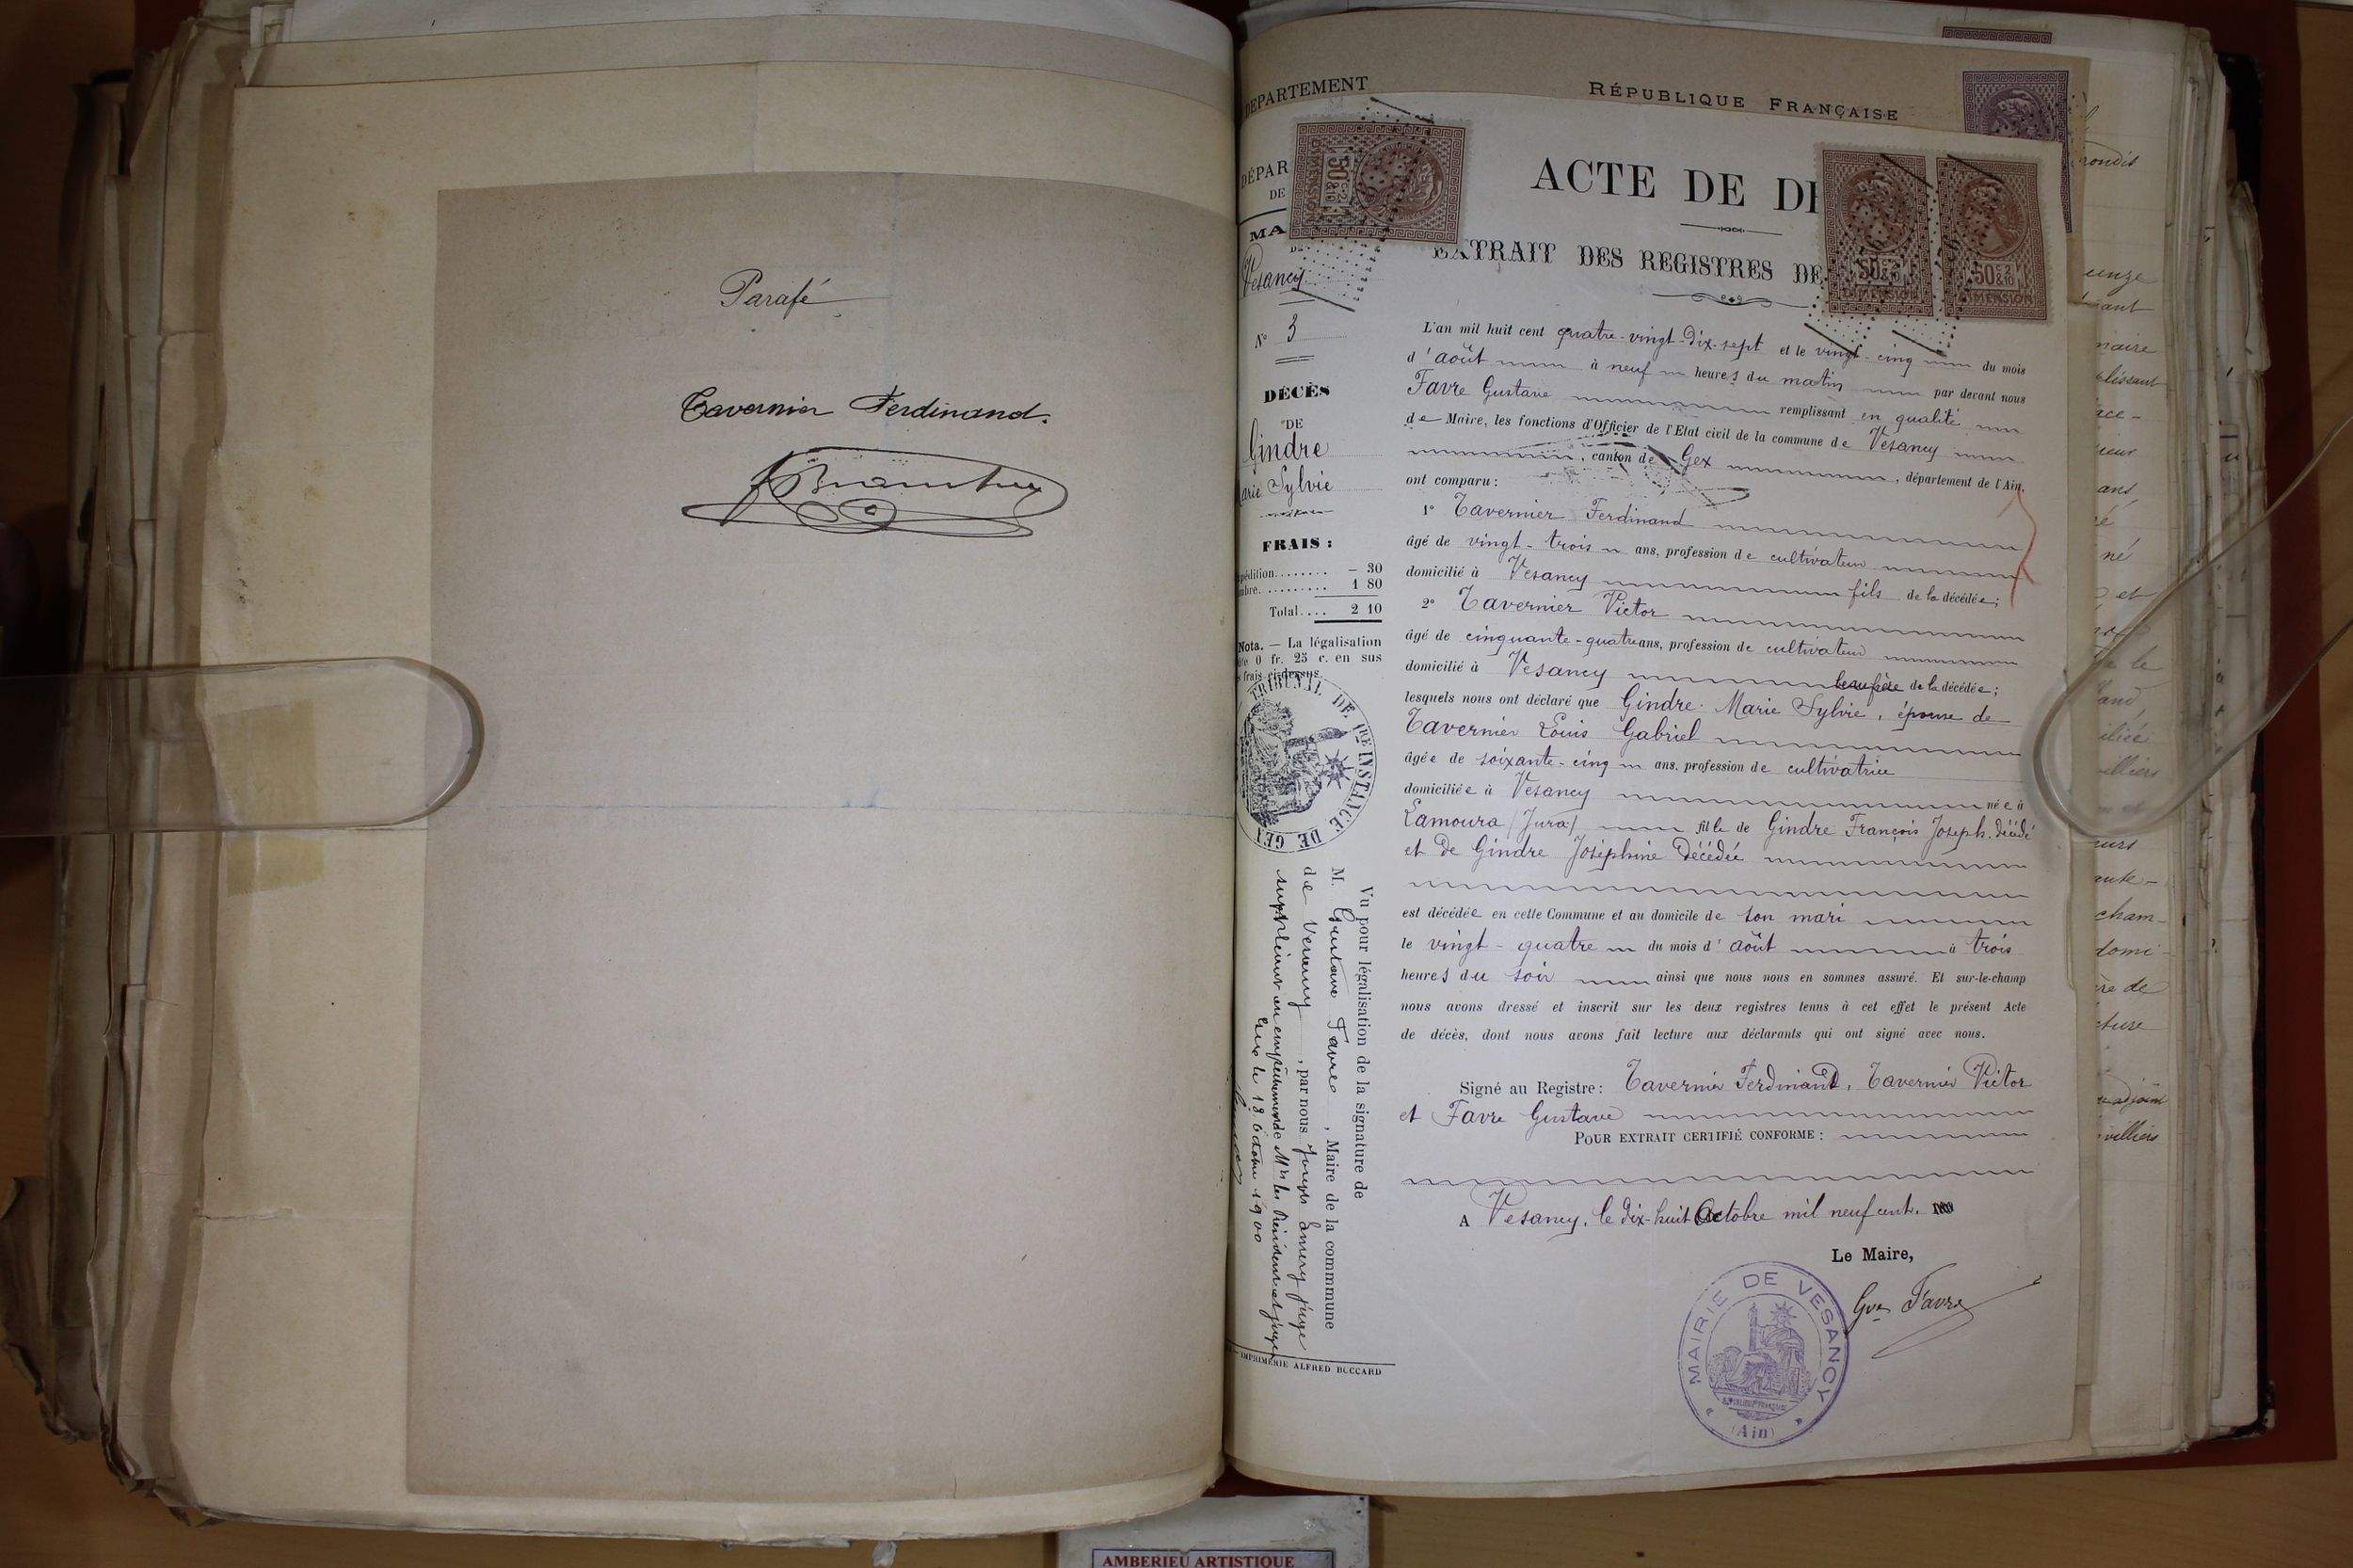 Parafé
Tavernier Ferdinand.
DEPARTEMENT
RÉPUBLIQUE FRANÇAISE
DÉPAR
DE
MA
DE
Vesancy
N° 3
DÉCÈS
DE
Gindre
arie Sylvie
FRAIS :
pédition........ – 30
mbre.......... 1 80
Total.... 2 10
Nota. — La légalisation
0 fr. 25 c. en sus
frais ci-dessus
TRIBUNAL DE 1RE INSTANCE DE GEX
Vu pour légalisation de la signature de
M. Gustave Favre, Maire de la commune
de Vesancy, par nous Joseph Emery juge
suppléant en empêchement de Mrs les Président et juges
Gex le 18 octobre 1900
IMPRIMERIE ALFRED BUCCARD
ACTE DE DÉ
EXTRAIT DES REGISTRES DE
50 c. 2/10
DIMENSION
50 c. 2/10
DIMENSION
50 c. 2/10
DIMENSION
L'an mil huit cent quatre-vingt-dix-sept et le vingt-cinq du mois
d'août à neuf heures du matin par devant nous
Favre Gustave remplissant en qualité
de Maire, les fonctions d'Officier de l'Etat civil de la commune de Vesancy
, canton de Gex, département de l'Ain,
ont comparu :
1° Tavernier Ferdinand
âgé de vingt-trois ans, profession de cultivateur
domicilié à Vesancy fils de la décédée;
2° Tavernier Victor
âgé de cinquante-quatre ans, profession de cultivateur
domicilié à Vesancy beaufrère de la décédée;
lesquels nous ont déclaré que Gindre Marie Sylvie, épouse de
Tavernier Louis Gabriel
âgée de soixante-cinq ans, profession de cultivatrice
domiciliée à Vesancy née à
Lamoura (Jura) fille de Gindre François Joseph, décédé
et de Gindre Joséphine décédée
est décédée en cette Commune et au domicile de son mari
le vingt-quatre du mois d'août à trois
heures du soir ainsi que nous nous en sommes assuré. Et sur-le-champ
nous avons dressé et inscrit sur les deux registres tenus à cet effet le présent Acte
de décès, dont nous avons fait lecture aux déclarants qui ont signé avec nous.
Signé au Registre : Tavernier Ferdinand, Tavernier Victor
et Favre Gustave
POUR EXTRAIT CERTIFIÉ CONFORME :
A Vesancy, le dix-huit Octobre mil neuf cent.
Le Maire,
Gve Favre
MAIRIE DE VESANCY
RÉPUBLIQUE FRANÇAISE
(Ain)
rondis
unze
naire
plissant
ace-
ieur
ans
né
et
le
and,
iliée
villiers
eurs
ante-
cham-
domi-
ère de
cture
adjoint
villiers
AMBERIEU ARTISTIQUE